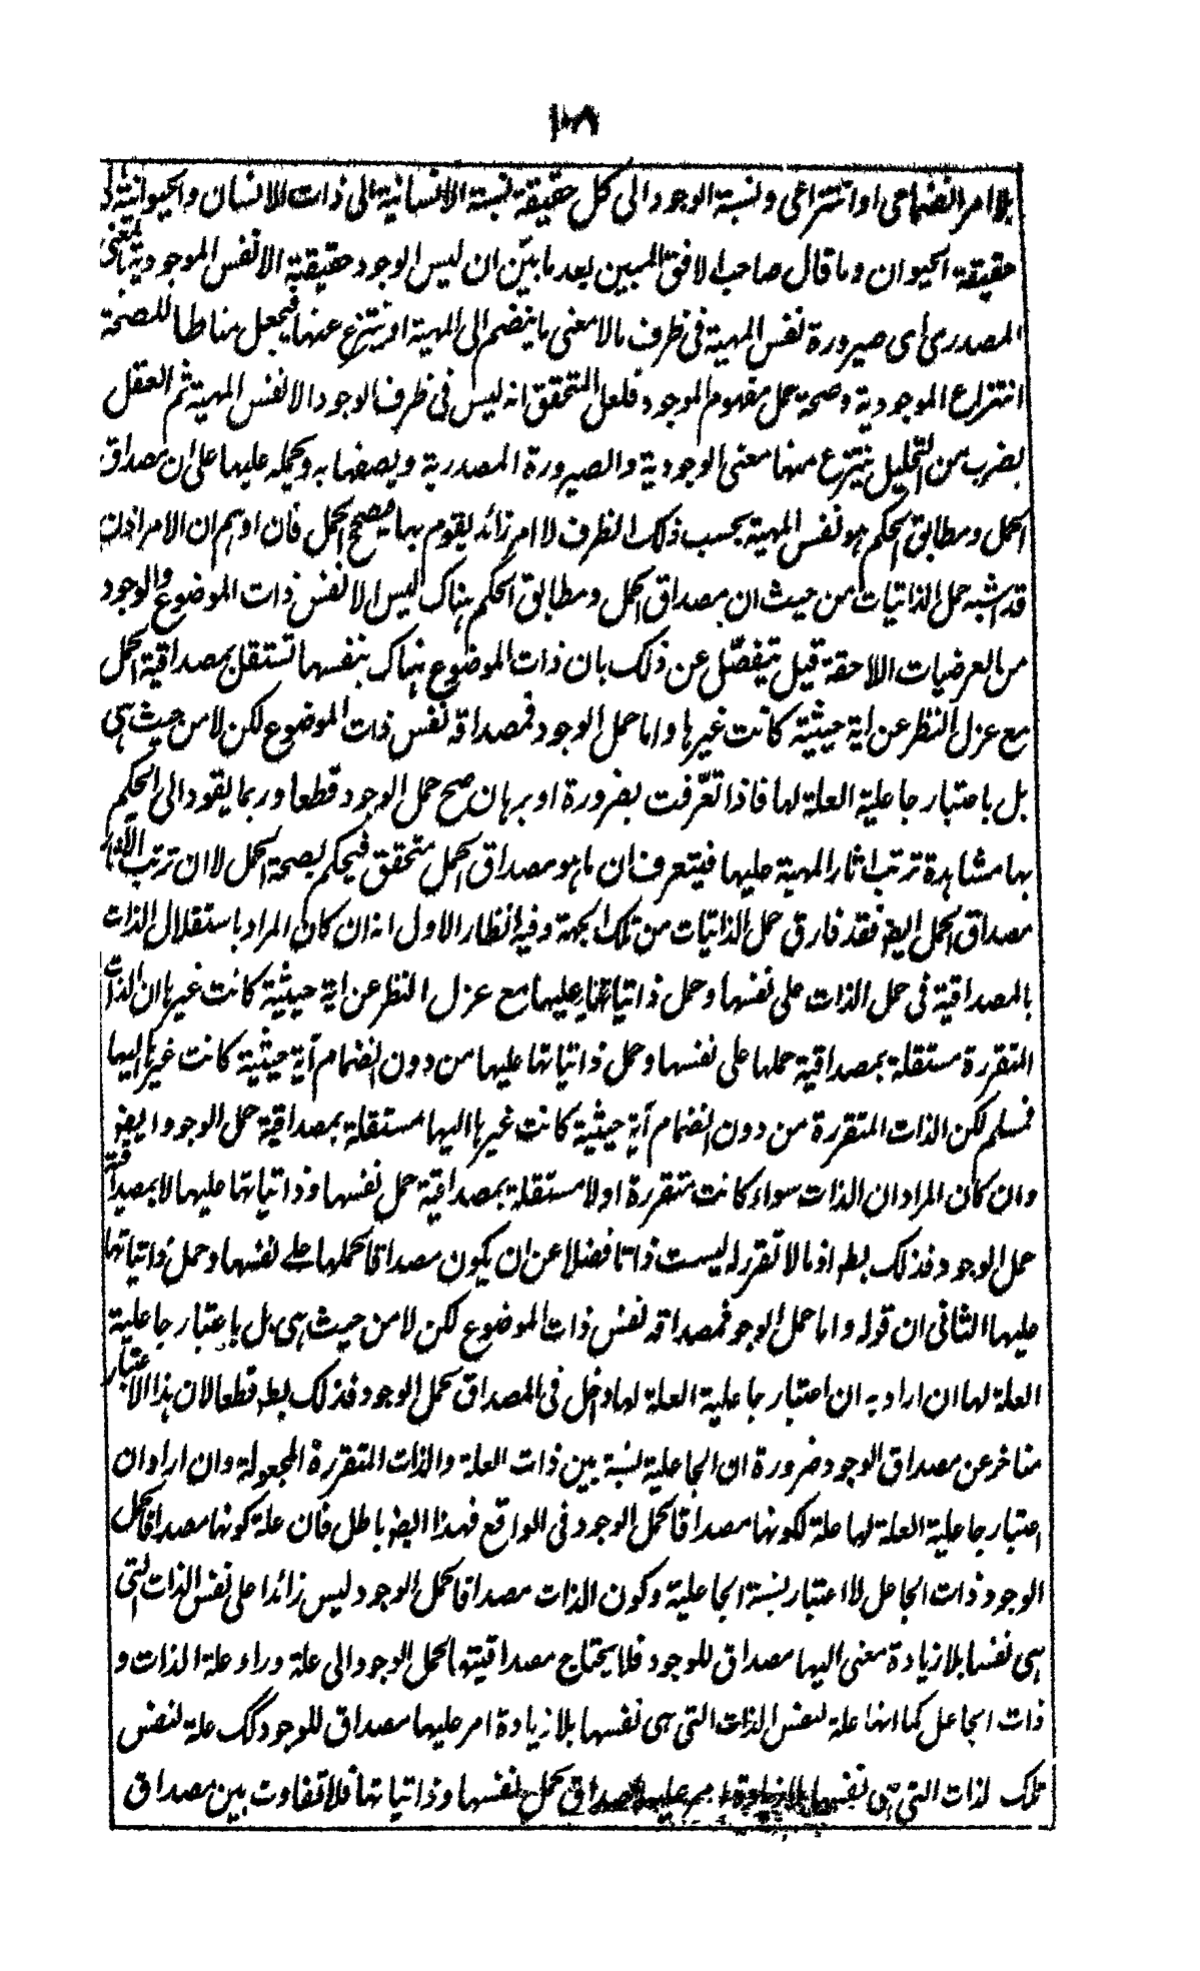 ١٠٨
بلا امر انضمامى او انتزاعى ونسبة الوجود الى كل حقيقة نسبة الانسانية الى ذات الانسان والحيوانية الى
حقيقة الحيوان وما قال صاحب الافق المبين بعد ما بيّن ان ليس الوجود حقيقية الا نفس الموجودية بالمعنى
المصدرى اى صيرورة نفس المهية فى ظرف ما لا معنى ما ينضم الى المهية او ينتزع عنها فيجعل مناطا للصحة
انتزاع الموجودية وصحة حمل مفهوم الموجود فلعل المتحقق انه ليس فى ظرف الوجود الا نفس المهية ثم العقل
بضرب من التحليل ينتزع منها معنى الوجودية والصيرورة المصدرية ويصفها به ويحمله عليها على ان مصداق
الحمل ومطابق الحكم هو نفس المهية بحسب ذلك الظرف لا امر زائد يقوم بها فيصحح الحمل فان اوهم ان الامر اذن
قد اشبه حمل الذاتيات من حيث ان مصداق الحمل ومطابق الحكم هناك ليس الا نفس ذات الموضوع والوجود
من العرضيات اللاحقة قيل يتفصّل عن ذلك بان ذات الموضوع هناك بنفسها تستقل بمصداقية الحمل
مع عزل النظر عن اية حيثية كانت غيرها واما حمل الوجود فمصداقه نفس ذات الموضوع لكن لا من حيث هى
بل باعتبار جاعلية العلة لها فاذا تعرّفت بضرورة او برهان صح حمل الوجود قطعا وربما يقود الى الحكم
بها مشاهدة ترتب اثار المهية عليها فيتعرف ان ما هو مصداق الحمل متحقق فيحكم بصحة الحمل لا ان ترتب الآثار
مصداق الحمل ايضا فقد فارق حمل الذاتيات من تلك الجهة وفيه انظار الاول انه ان كان المراد باستقلال الذات
بالمصداقية فى حمل الذات على نفسها وحمل ذاتياتها عليها مع عزل النظر عن اية حيثية كانت غيرها ان الذات
المتقررة مستقلة بمصداقية حملها على نفسها وحمل ذاتياتها عليها من دون انضمام آية حيثية كانت غيرها اليها
فمسلم لكن الذات المتقررة من دون انضمام آية حيثية كانت غيرها اليها مستقلة بمصداقية حمل الوجود ايضا
وان كان المراد ان الذات سواء كانت متقررة او لا مستقلة بمصداقية حمل نفسها وذاتياتها عليها لا بمصداقية
حمل الوجود فذلك بط اذ ما لا تقرر له ليست ذاتا فضلا عن ان يكون مصداقا لحملها على نفسها وحمل ذاتياتها
عليها الثانى ان قوله واما حمل الوجود فمصداقه نفس ذات الموضوع لكن لا من حيث هى بل باعتبار جاعلية
العلة لها ان اراد به ان اعتبار جاعلية العلة لها دخل فى المصداق لحمل الوجود فذلك بط قطعا لان هذا الاعتبار
متاخر عن مصداق الوجود ضرورة ان الجاعلية نسبة بين ذات العلة والذات المتقررة المجعولة وان اراد ان
اعتبار جاعلية العلة لها علة لكونها مصداقا لحمل الوجود فى الواقع فهذا ايضا باطل فان علة كونها مصداقا لحمل
الوجود ذات الجاعل لا اعتبار نسبة الجاعلية وكون الذات مصداقا لحمل الوجود ليس زائدا على نفس الذات التى
هى نفسها بلا زيادة معنى اليها مصداق للوجود فلا يحتاج مصداقيتها لحمل الوجود الى علة وراء علة الذات و
ذات الجاعل كما انها علة لنفس الذات التى هى نفسها بلا زيادة امر عليها مصداق للوجود كك علة لنفس
تلك لذات التى هى نفسها بلا زيادة امر عليها مصداق لحمل نفسها وذاتياتها فلا تفاوت بين مصداق